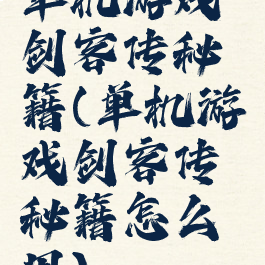 单机游戏
剑客传秘
籍(单机游
戏剑客传
秘籍怎么
用)